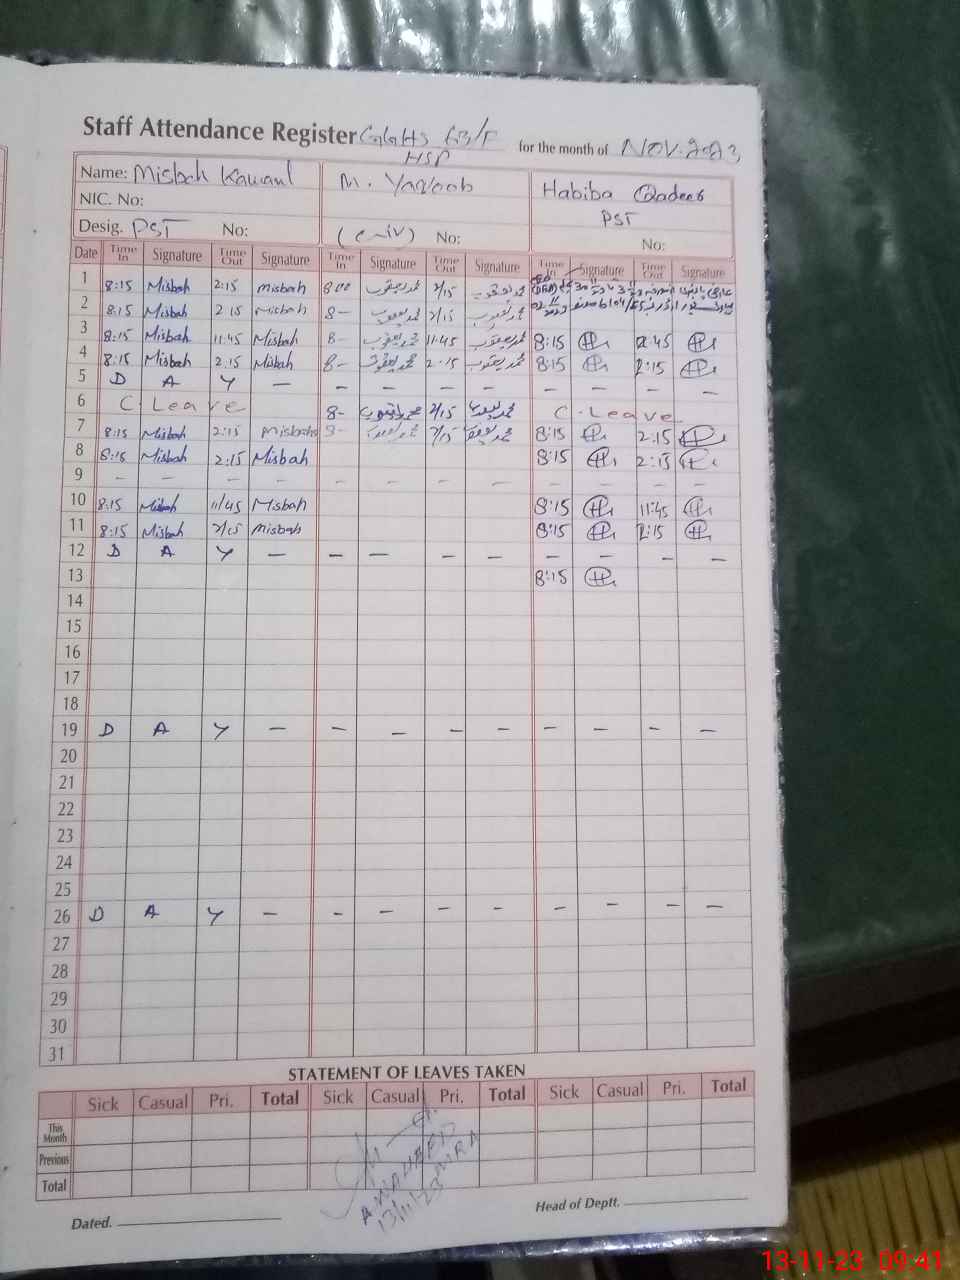 Staff Attendance Register GGHS GB/F for the month of NOV.2023
HSP
Name: Misbah Kawanl M. Yaqoob Habiba Qadeer
NIC. No:
PST
Desig. PST No: (Civ) No: No:
Date Time In Signature Time Out Signature Time In Signature Time Out Signature Time In Signature Time Out Signature
1 8:15 Misbah 2:15 Misbah 8:00 محمد یعقوب 2/15 محمد یعقوب
2 8:15 Misbah 2 15 Misbah 8- محمد یعقوب 2/15 محمد یعقوب
3 8:15 Misbah 11:45 Misbah 8- محمد یعقوب 11:45 محمد یعقوب 8:15 11:45
4 8:15 Misbah 2:15 Misbah 8- محمد یعقوب 2:15 محمد یعقوب 8:15 2:15
5 D A Y - - - - - - - - -
6 C. Leave 8- محمد یعقوب 2/15 محمد یعقوب C. Leave
7 8:15 Misbah 2:15 Misbah 8- محمد یعقوب 2/15 محمد یعقوب 8:15 2:15
8 8:15 Misbah 2:15 Misbah 8:15 2:15
9 - - - - - - - - - - - -
10 8:15 Misbah 11/45 Misbah 8:15 11:45
11 8:15 Misbah 2/15 Misbah 8:15 2:15
12 D A Y - - - - - - - - -
13 8:15
14
15
16
17
18
19 D A Y - - - - - - - - -
20
21
22
23
24
25
26 D A Y - - - - - - - - -
27
28
29
30
31
STATEMENT OF LEAVES TAKEN
Sick Casual Pri. Total Sick Casual Pri. Total Sick Casual Pri. Total
This Month
Previous
Total
A WAHEED
13/11/23 MRA
Dated. Head of Deptt.
13-11-23 09:41